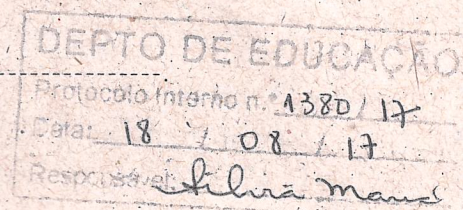 DEPTO DE EDUCAÇÃO
Protocolo Interno n.º 1380/17
Data: 18 / 08 / 17
Responsável: Silvia Mana